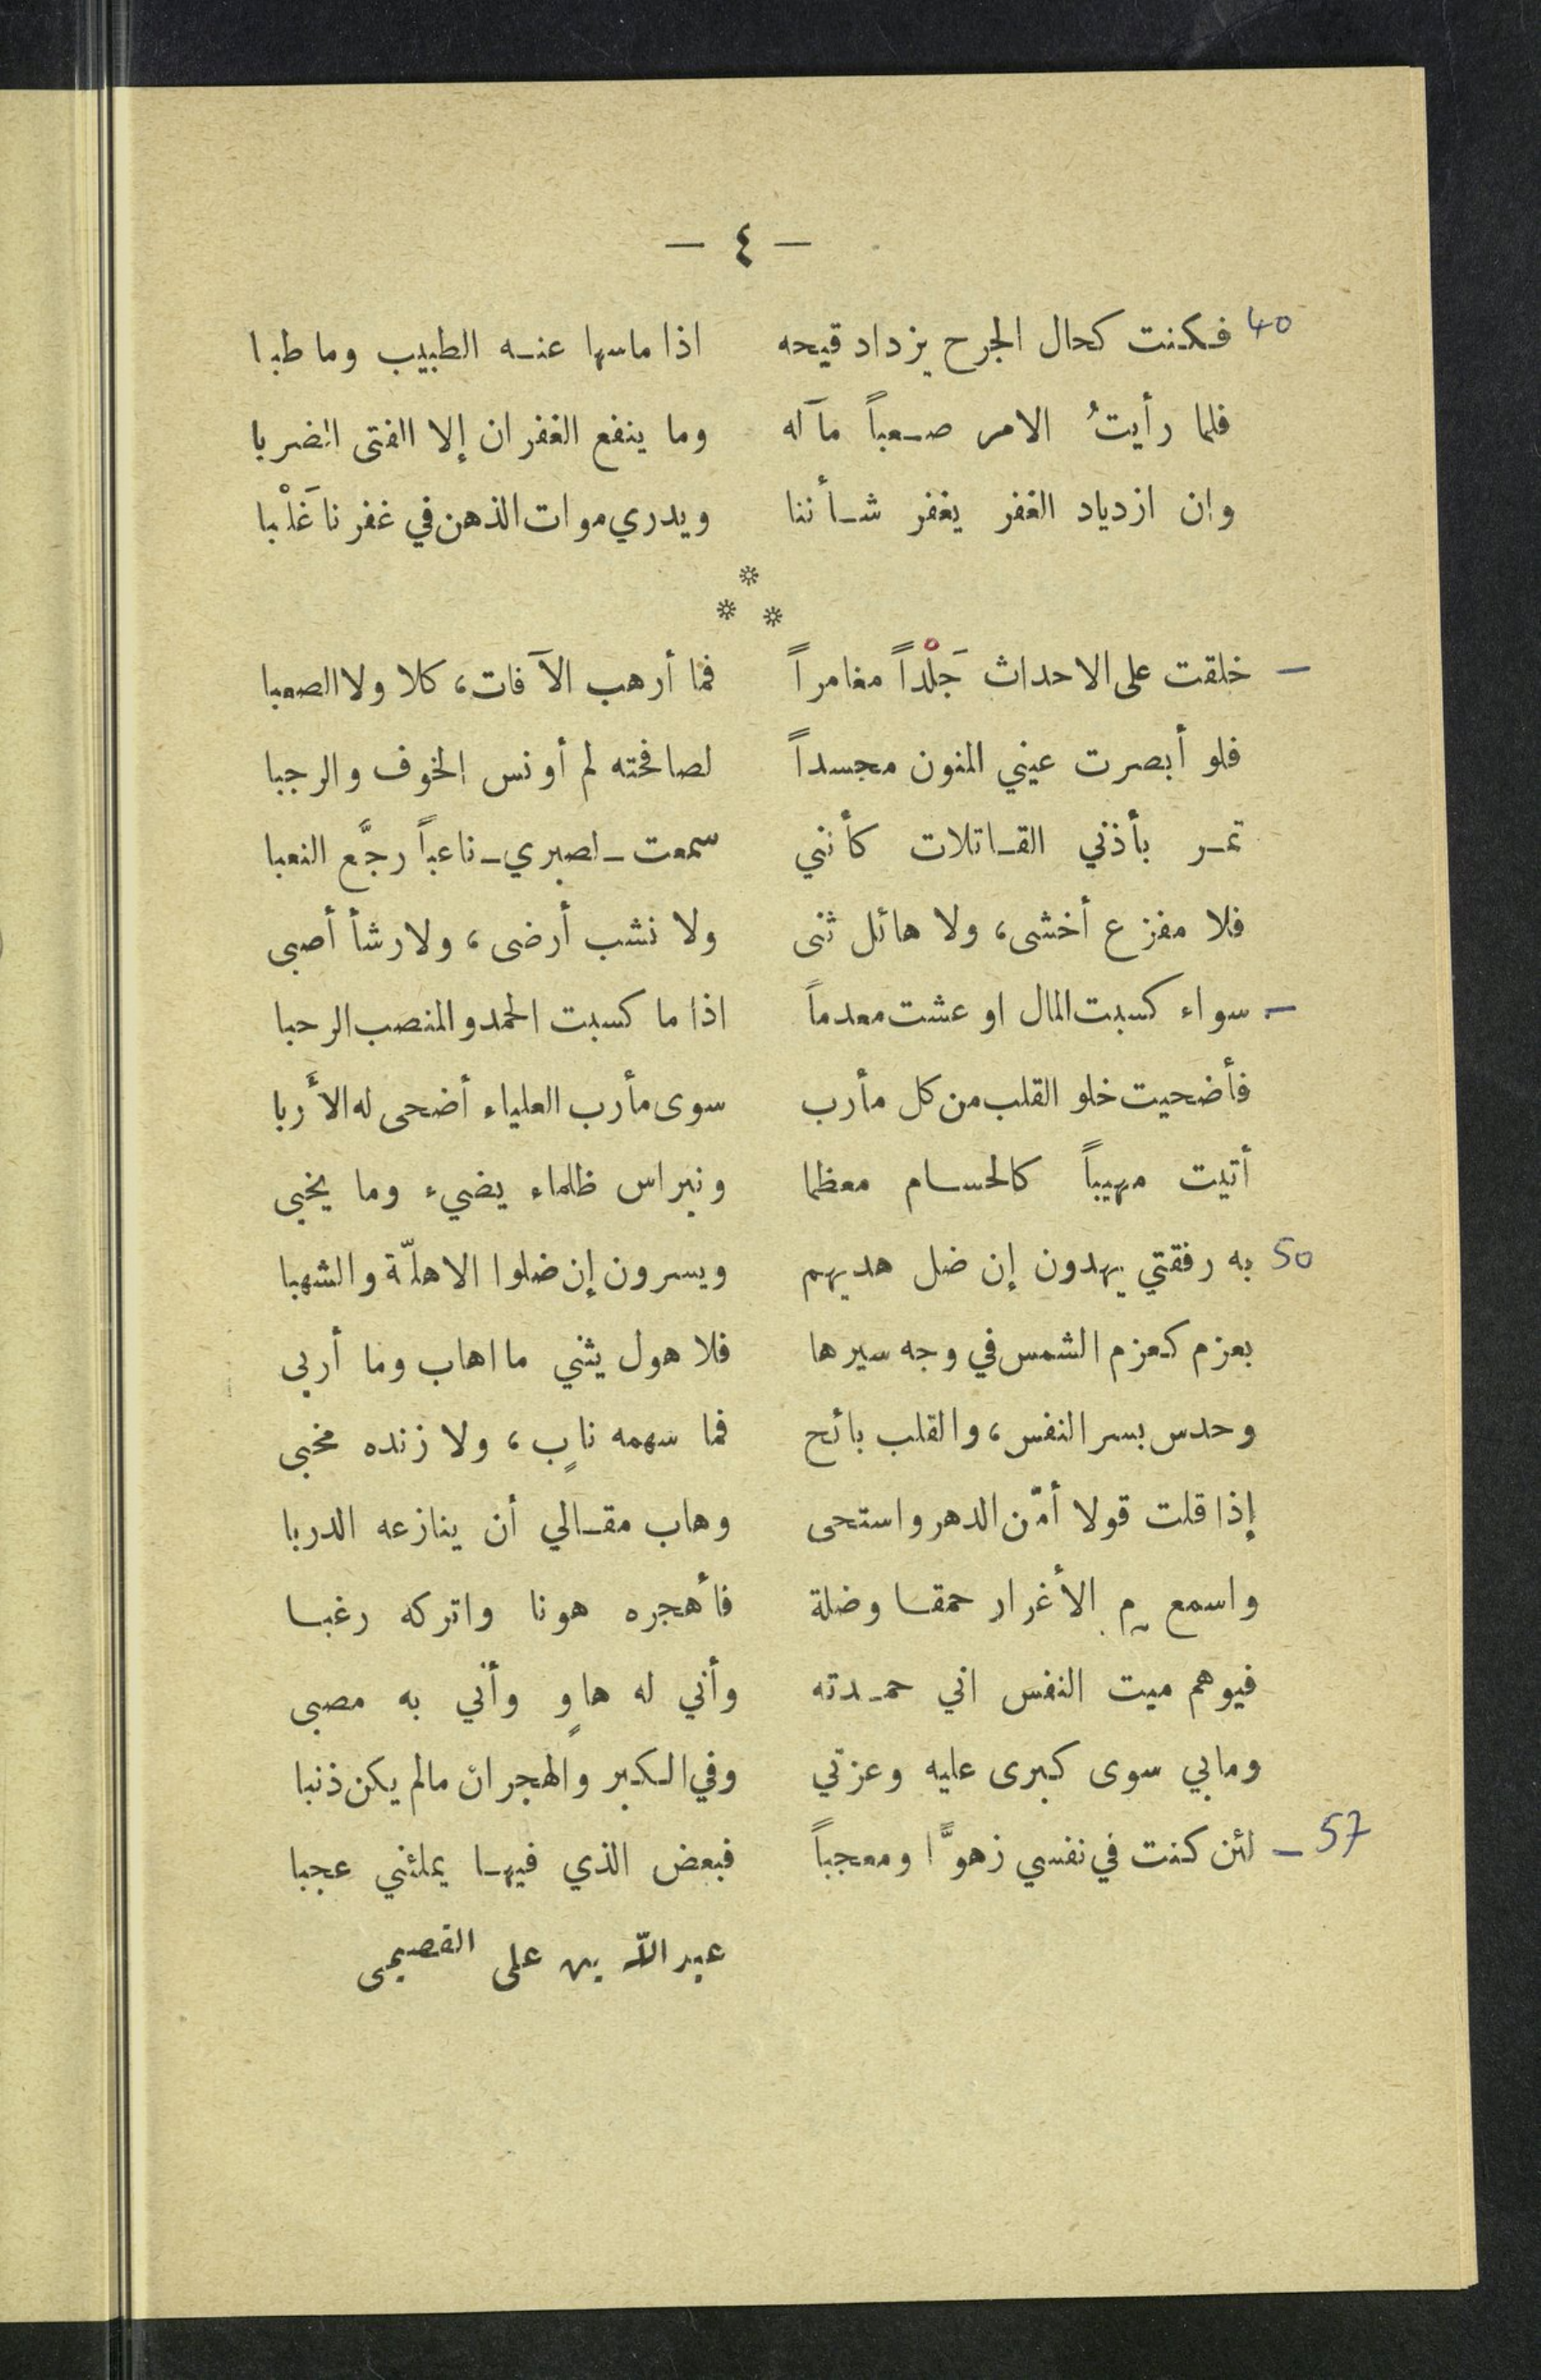 — ٤ —
40 فكنت كحال الجرح يزداد قيحه اذا ماسها عنه الطبيب وما طبا
فلما رأيتُ الامر صعباً مآله وما ينفع الغفران إلا الفتى الضربا
وان ازدياد الغفر يغفر شأننا ويدري موات الذهن في غفرنا غَلْبا
* * *
— خلقت على الاحداث جَلْداً مغامراً فما أرهب الآفات، كلا ولا الصعبا
فلو أبصرت عيني المنون مجسداً لصافحته لم أونس الخوف والرجبا
تمر بأذني القاتلات كأنني سمعت ـ لصبري ـ ناعباً رجَّع النعبا
فلا مفزع أخشى، ولا هائل ثنى ولا نشب أرضى، ولا رشأ أصبى
— سواء كسبت المال او عشت معدماً اذا ما كسبت الحمد والمنصب الرحبا
فأضحيت خلو القلب من كل مأرب سوى مأرب العلياء أضحى له الأَربا
أتيت مهيباً كالحسام معظما ونبراس ظلماء يضيء وما يخبى
50 به رفقتي يهدون إن ضل هديهم ويسرون إن ضلوا الاهلّة والشهبا
بعزم كعزم الشمس في وجه سيرها فلا هول يثني ما اهاب وما أربى
وحدس بسر النفس، والقلب بائح فما سهمه نابٍ، ولا زنده مخبى
إذا قلت قولا أمّن الدهر واستحى وهاب مقالي أن ينازعه الدربا
واسمع م الأغرار حمقا وضلة فأهجره هونا واتركه رغبا
فيوهم ميت النفس اني حمدته وأني له هاوٍ وأني به مصبى
ومابي سوى كبرى عليه وعزتي وفي الكبر والهجران مالم يكن ذنبا
57 — لئن كنت في نفسي زهوًّا ومعجباً فبعض الذي فيها يملئني عجبا
عبد الله بن علي القصيمي